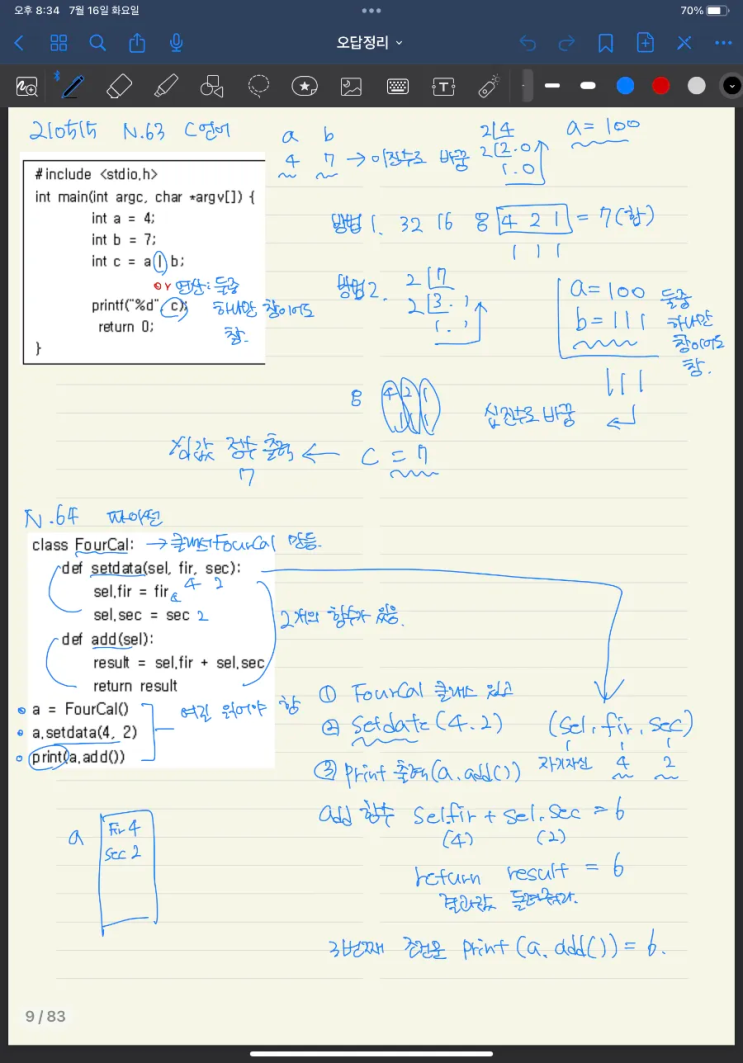 오후 8:34 7월 16일 화요일
70%
오답정리
210515 N.63 C언어
a b
4 7 → 이진수로 바꿈
2 4
2 2.0
1.0
a = 100
#include <stdio,h>
int main(int argc, char *argv[]) {
int a = 4;
int b = 7;
int c = a | b;
or 연산: 둘중
하나만 참이어도
참.
printf("%d" c);
return 0;
}
방법 1. 32 16 8 4 2 1 = 7(합)
1 1 1
방법 2.
2 7
2 3.1
1.1
a = 100
b = 111
둘중
하나만
참이어도
참.
111
8 4 2 1
1 1 1
십진수로 바꿈
c = 7
정수 출력 ←
7
N.64 파이썬
class FourCal: → 클래스 FourCal 만듬.
def setdata(sel, fir, sec):
sel.fir = fir 4 2
sel.sec = sec 2
def add(sel):
result = sel.fir + sel.sec
return result
2개의 함수가 있음.
a = FourCal()
a.setdata(4, 2)
print(a.add())
여길 읽어야 함
① FourCal 클래스 있고
② Setdate (4.2)
(Sel, fir, sec)
자기자신 4 2
③ print 출력(a.add())
add 함수 Sel.fir + sel.sec = 6
(4) (2)
return result = 6
결과값 돌려줘라.
3번째 조건은 print (a.add()) = 6.
a
fir 4
Sec 2
9 / 83